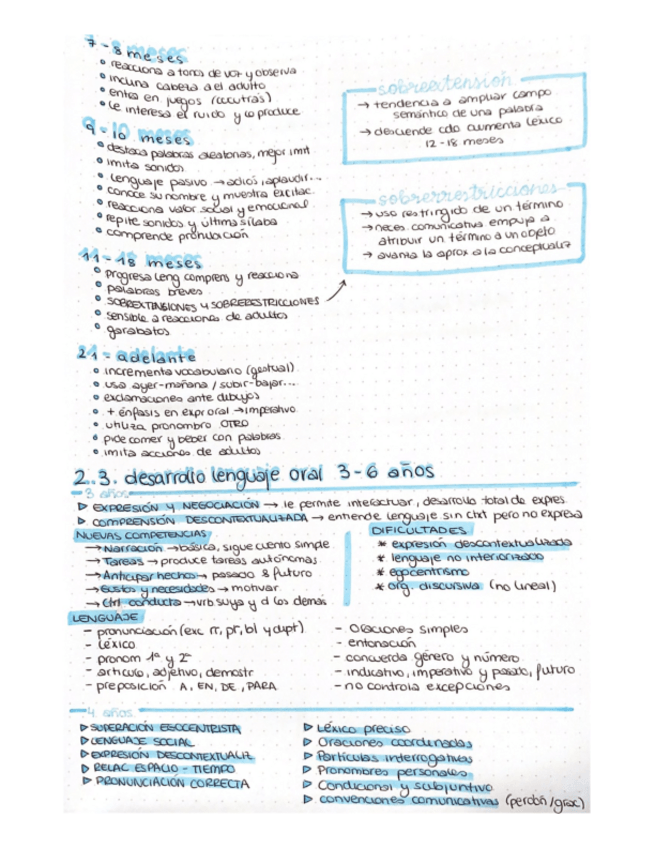 7 - 8 meses
reacciona a tonos de voz y observa
inclina cabeza a el adulto
entra en juegos (cucutras)
le interesa el ruido y lo produce
9 - 10 meses
destaca palabras aleatorias, mejor imit
imita sonidos
lenguaje pasivo → adios, aplaudir...
conoce su nombre y muestra excitac.
reacciona valor social y emocional
repite sonidos y última sílaba
comprende prohibición
11 - 18 meses
progresa leng comprens y reacciona
palabras breves
SOBREXTENSIONES Y SOBRERESTRICCIONES
sensible a reacciones de adultos
garabatos
sobreextensión
→ tendencia a ampliar campo
semántico de una palabra
→ desciende cdo aumenta léxico
12 - 18 meses
sobrerrestricciones
→ uso restringido de un término
→ neces. comunicativa empuja a
atribuir un término a un objeto
→ avanza la aprox a la conceptualiz
21 - adelante
incrementa vocabulario (gestual)
usa ayer-mañana / subir-bajar...
exclamaciones ante dibujos
+ énfasis en expr oral → imperativo
utiliza pronombre OTRO
pide comer y beber con palabras
imita acciones de adultos
2.3. desarrollo lenguaje oral 3-6 años
3 años
▷ EXPRESIÓN Y NEGOCIACIÓN → le permite interactuar, desarrollo total de expres
▷ COMPRENSIÓN DESCONTEXTUALIZADA → entiende lenguaje sin ctxt pero no expresa
NUEVAS COMPETENCIAS
→ Narración → básica, sigue cuento simple
→ Tareas → produce tareas autónomas
→ Anticipar hechos → pasado & futuro
→ Gustos y necesidades → motivar
→ Ctrl conducta → vrb suya y d los demás
DIFICULTADES
* expresión descontextualizada
* lenguaje no interiorizado
* egocentrismo
* org. discursiva (no lineal)
LENGUAJE
- pronunciación (exc rr, pr, bl y dipt)
- léxico
- pronom 1ª y 2ª
- artículo, adjetivo, demostr
- preposición A, EN, DE, PARA
- Oraciones simples
- entonación
- concuerda género y número
- indicativo, imperativo y pasado, futuro
- no controla excepciones
4 años
▷ SUPERACIÓN EGOCENTRISTA
▷ LENGUAJE SOCIAL
▷ EXPRESIÓN DESCONTEXTUALIZ
▷ RELAC ESPACIO - TIEMPO
▷ PRONUNCIACIÓN CORRECTA
▷ Léxico preciso
▷ Oraciones coordenadas
▷ Partículas interrogativas
▷ Pronombres personales
▷ Condicional y subjuntivo
▷ convenciones comunicativas (perdón/grac)